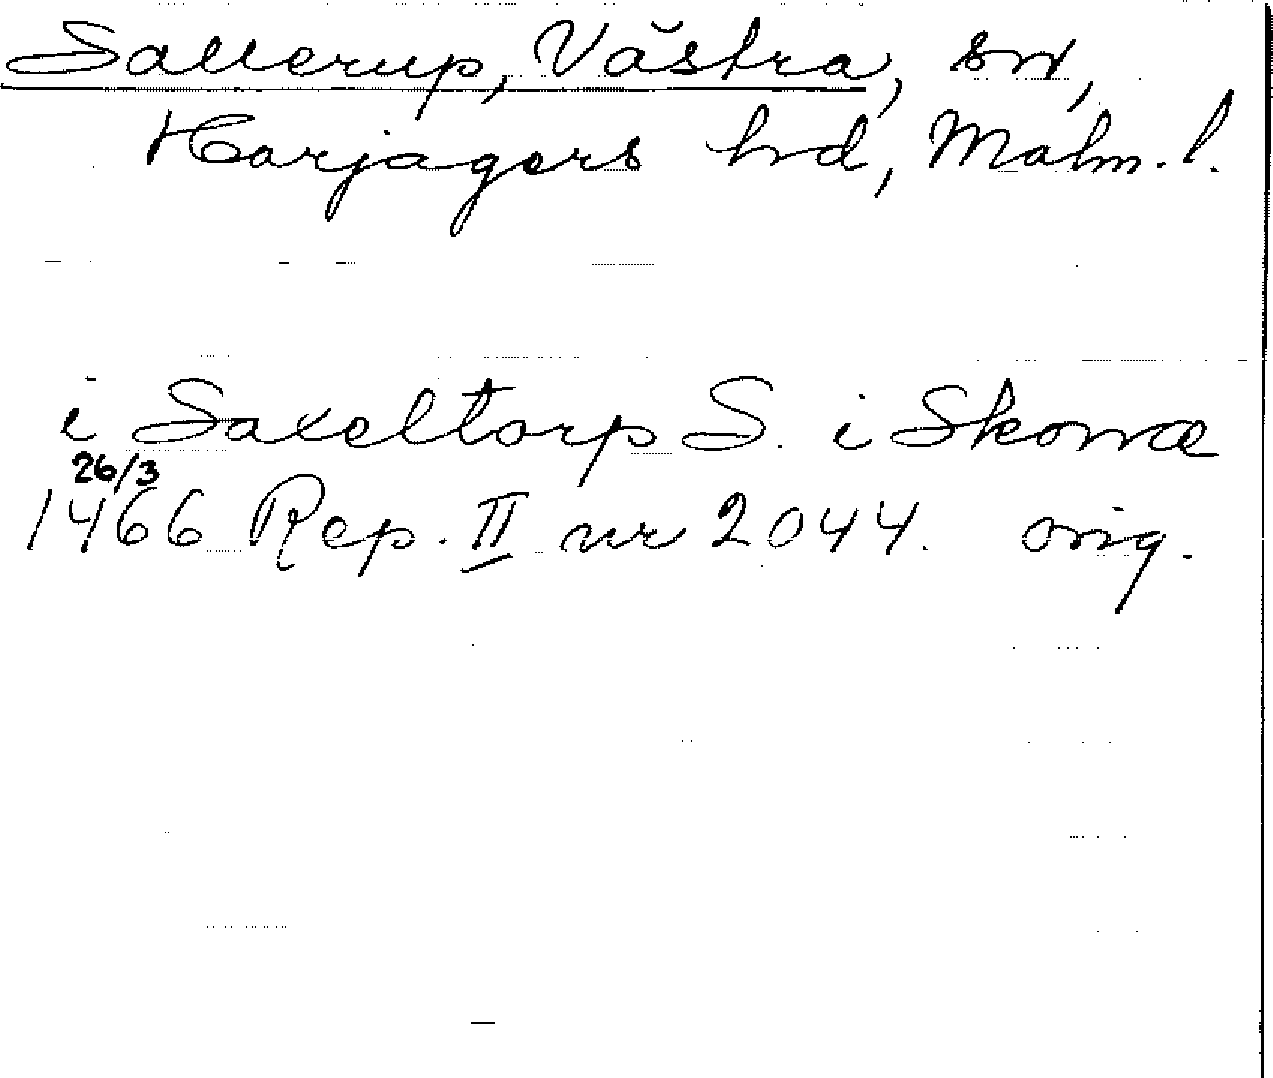 Sallerup, Västra, sn,
Harjagers hd, Malm. l.
i Saxeltorp S. i Skonæ
26/3
1466 Rep. II nr 2044. orig.